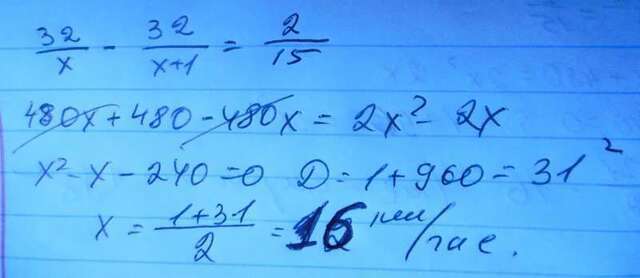 32/x - 32/x+1 = 2/15
480x + 480 - 480x = 2x² - 2x
x² - x - 240 = 0 D = 1 + 960 = 31²
x = 1+31/2 = 16 км/час.